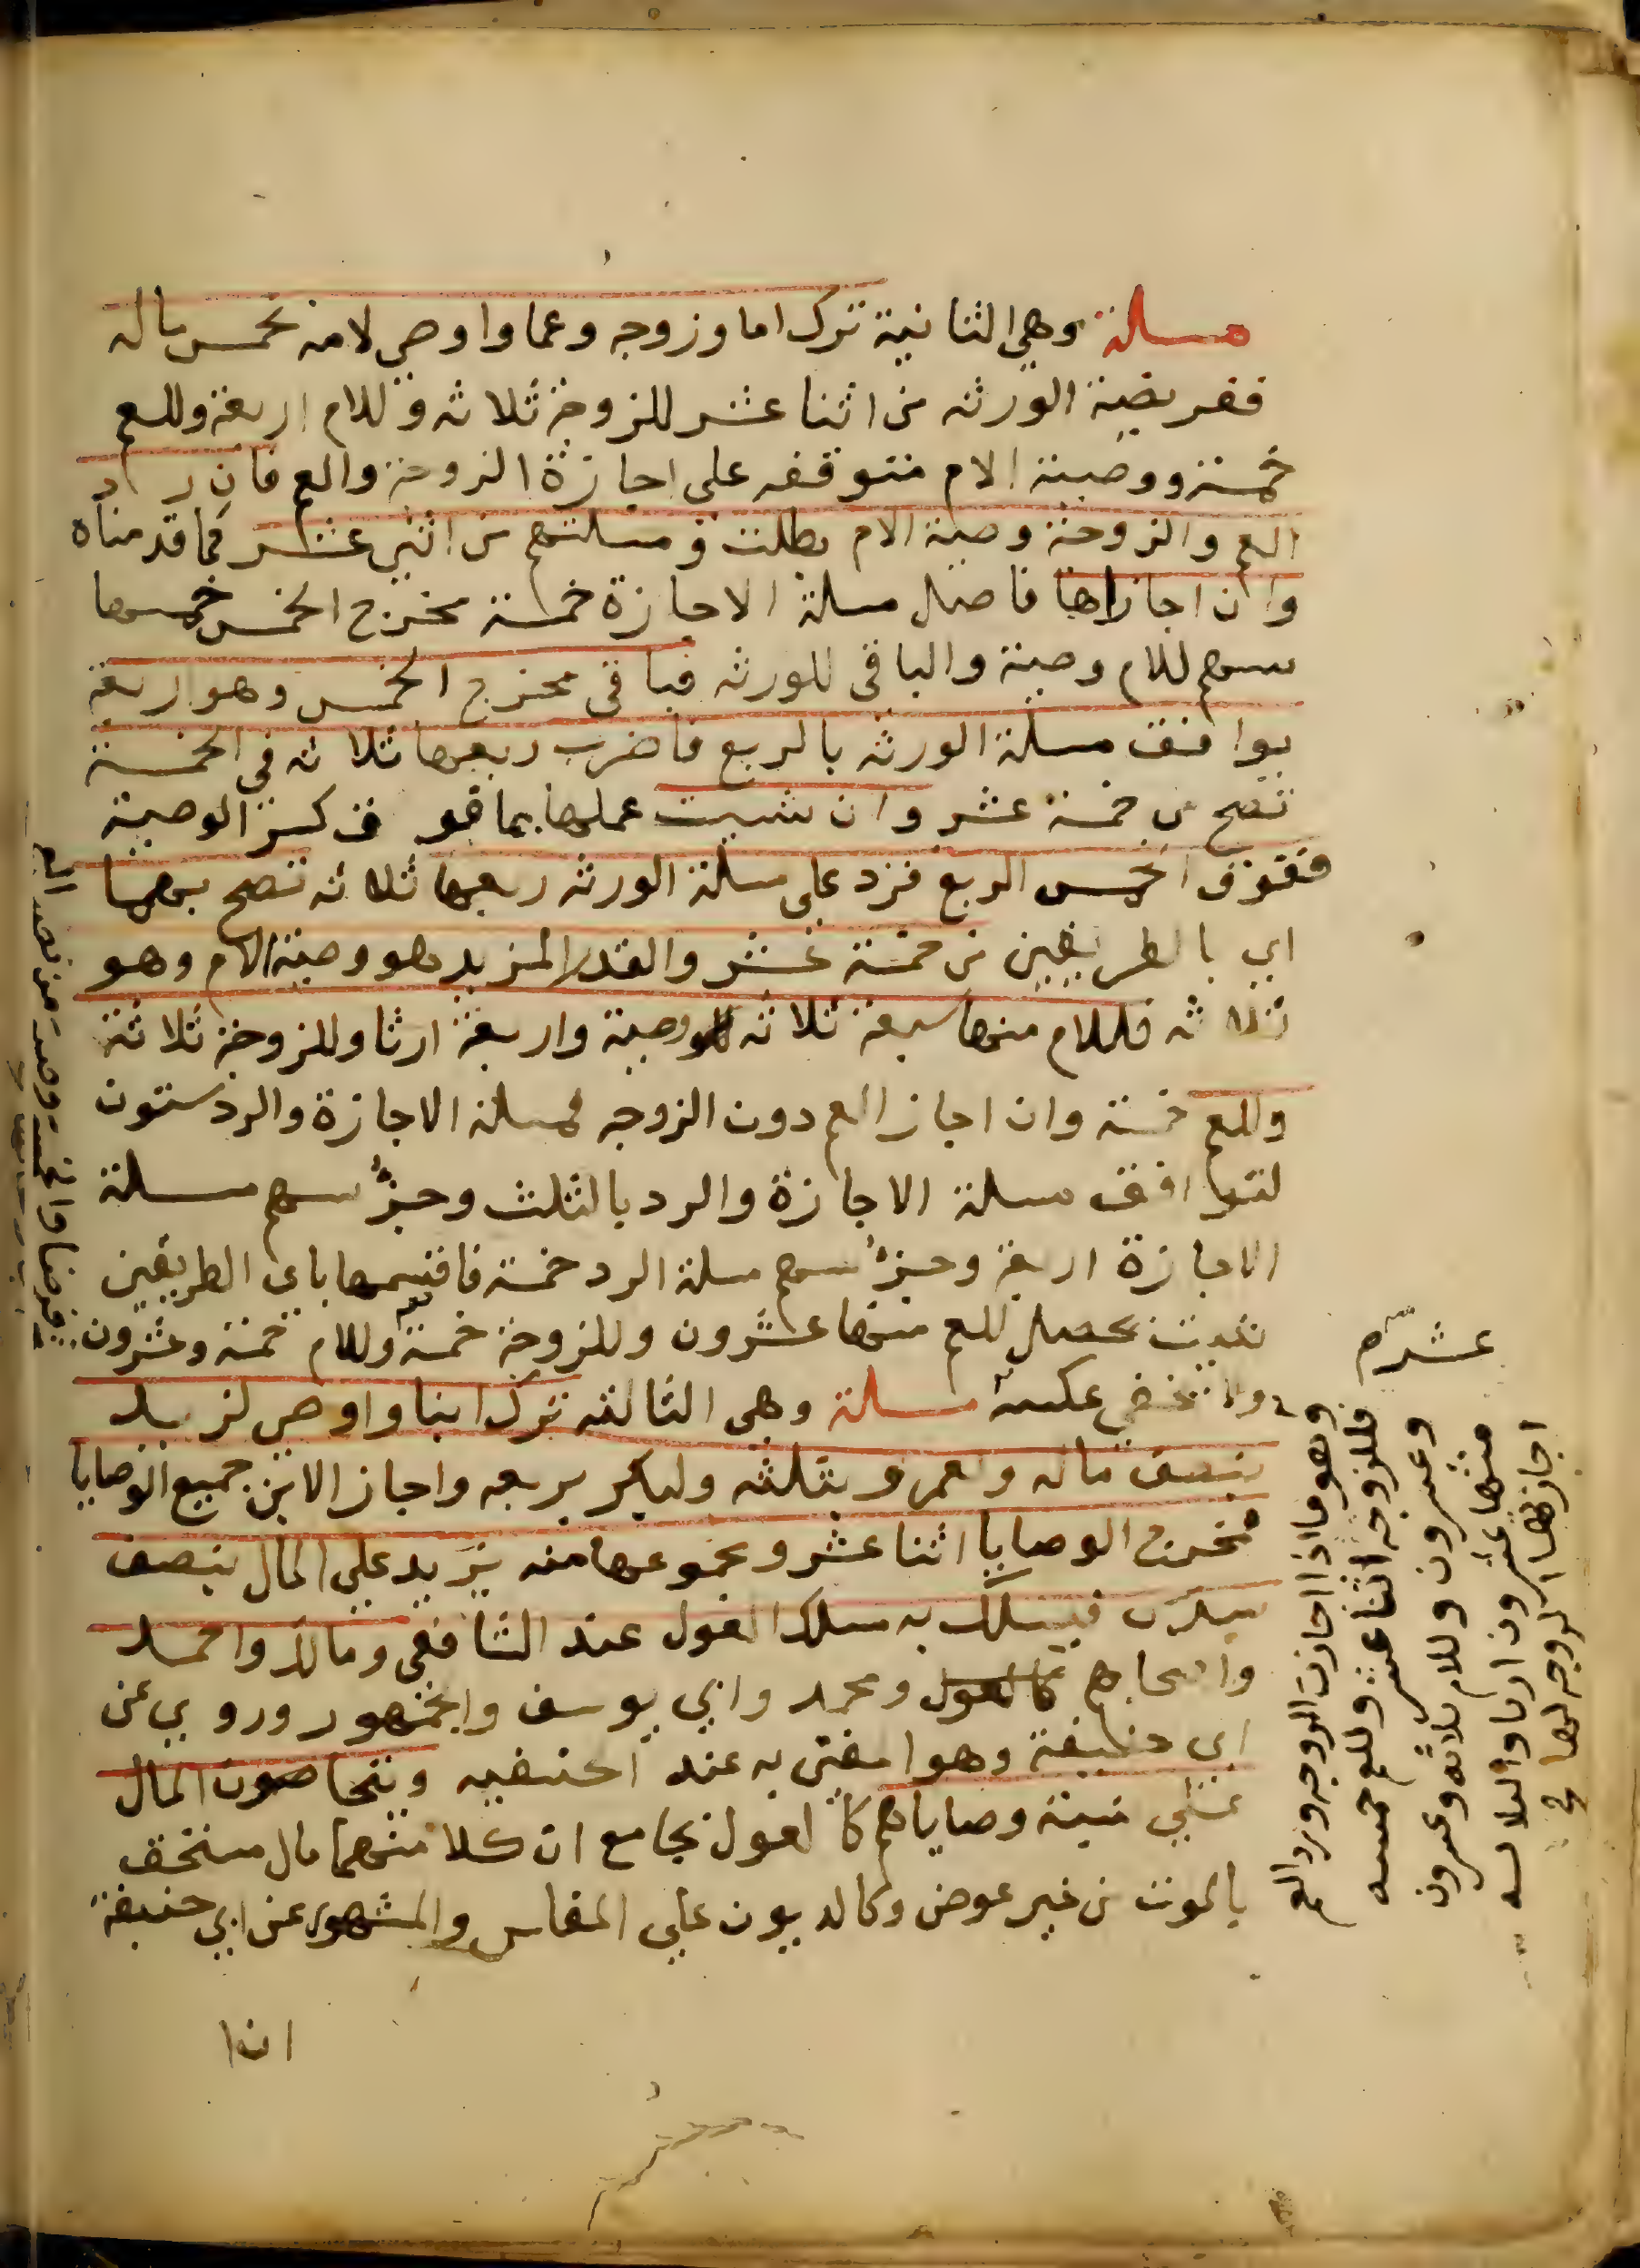 مسلة وهي الثانية ترك اما وزوجه وعما واوصى لامه بخمس ماله
ففريضة الورثه من اثنا عشر للزوجة ثلاثه وللام اربعة وللعم
خمسة ووصية الام متوقفه على اجازة الزوجة والعم فان رد
العم والزوجة وصية الام بطلت ومسلتهم من اثني عشر كما قدمناه
وان اجازاها فاصل مسلة الاجازة خمسة مخرج الخمس خمسها
سهم للام وصية والباقي للورثه فباقي مخرج الخمس وهو اربعة
يوافق مسلة الورثه بالربع فاضرب ربعها ثلاثه في الخمسة
تصح من خمسة عشر وان شيت عملها بما فوق كسر الوصية
ففوق الخمس الربع فزد على مسلة الورثه ربعها ثلاثه تصح
اي بالطريقين من خمسة عشر والقدر المزيد هو وصية الام وهو
ثلاثه فللام منها سبعة ثلاثه وصية واربعة ارثا وللزوجة ثلاثة
وللعم خمسة وان اجاز العم دون الزوجه فمسلة الاجازة والرد ستون
لتوافق مسلة الاجازة والرد بالثلث وجزؤ سهم مسلة
الاجازة اربعة وجزؤ سهم مسلة الرد خمسة فاقسمها باي الطريقين
شيت يحصل للعم منها عشرون وللزوجة خمسة وللام خمسة وعشرون
ولا تخفى عكسه مسلة وهي الثالثه ترك ابنا واوصى لزيد
بنصف ماله ولعمرو بثلثه ولبكر بربعه واجاز الابن جميع الوصايا
فمخرج الوصايا اثنا عشر ومجموعها منه يزيد على المال بنصف
سدس فيسلك به مسلك العول عند الشافعي ومالك واحمد
واصحابهم ومحمد وابي يوسف والجمهور وروي عن
ابي حنيفة وهو المفتى به عند الحنفيه ويتحاصون المال
على نسبة وصاياهم كالعول بجامع ان كلا منهما مال مستحق
بالموت من غير عوض وكالديون على المفلس والمشهور عن ابي حنيفة
عشره
وهو ما اذا اجازت الزوجه ورد العم
فللزوجه اثنا عشر وللعم خمسه
وعشرون وللام ثلاثه وعشرون
منها عشرون ارثا والثلاثه
اجازتها الزوجه لها